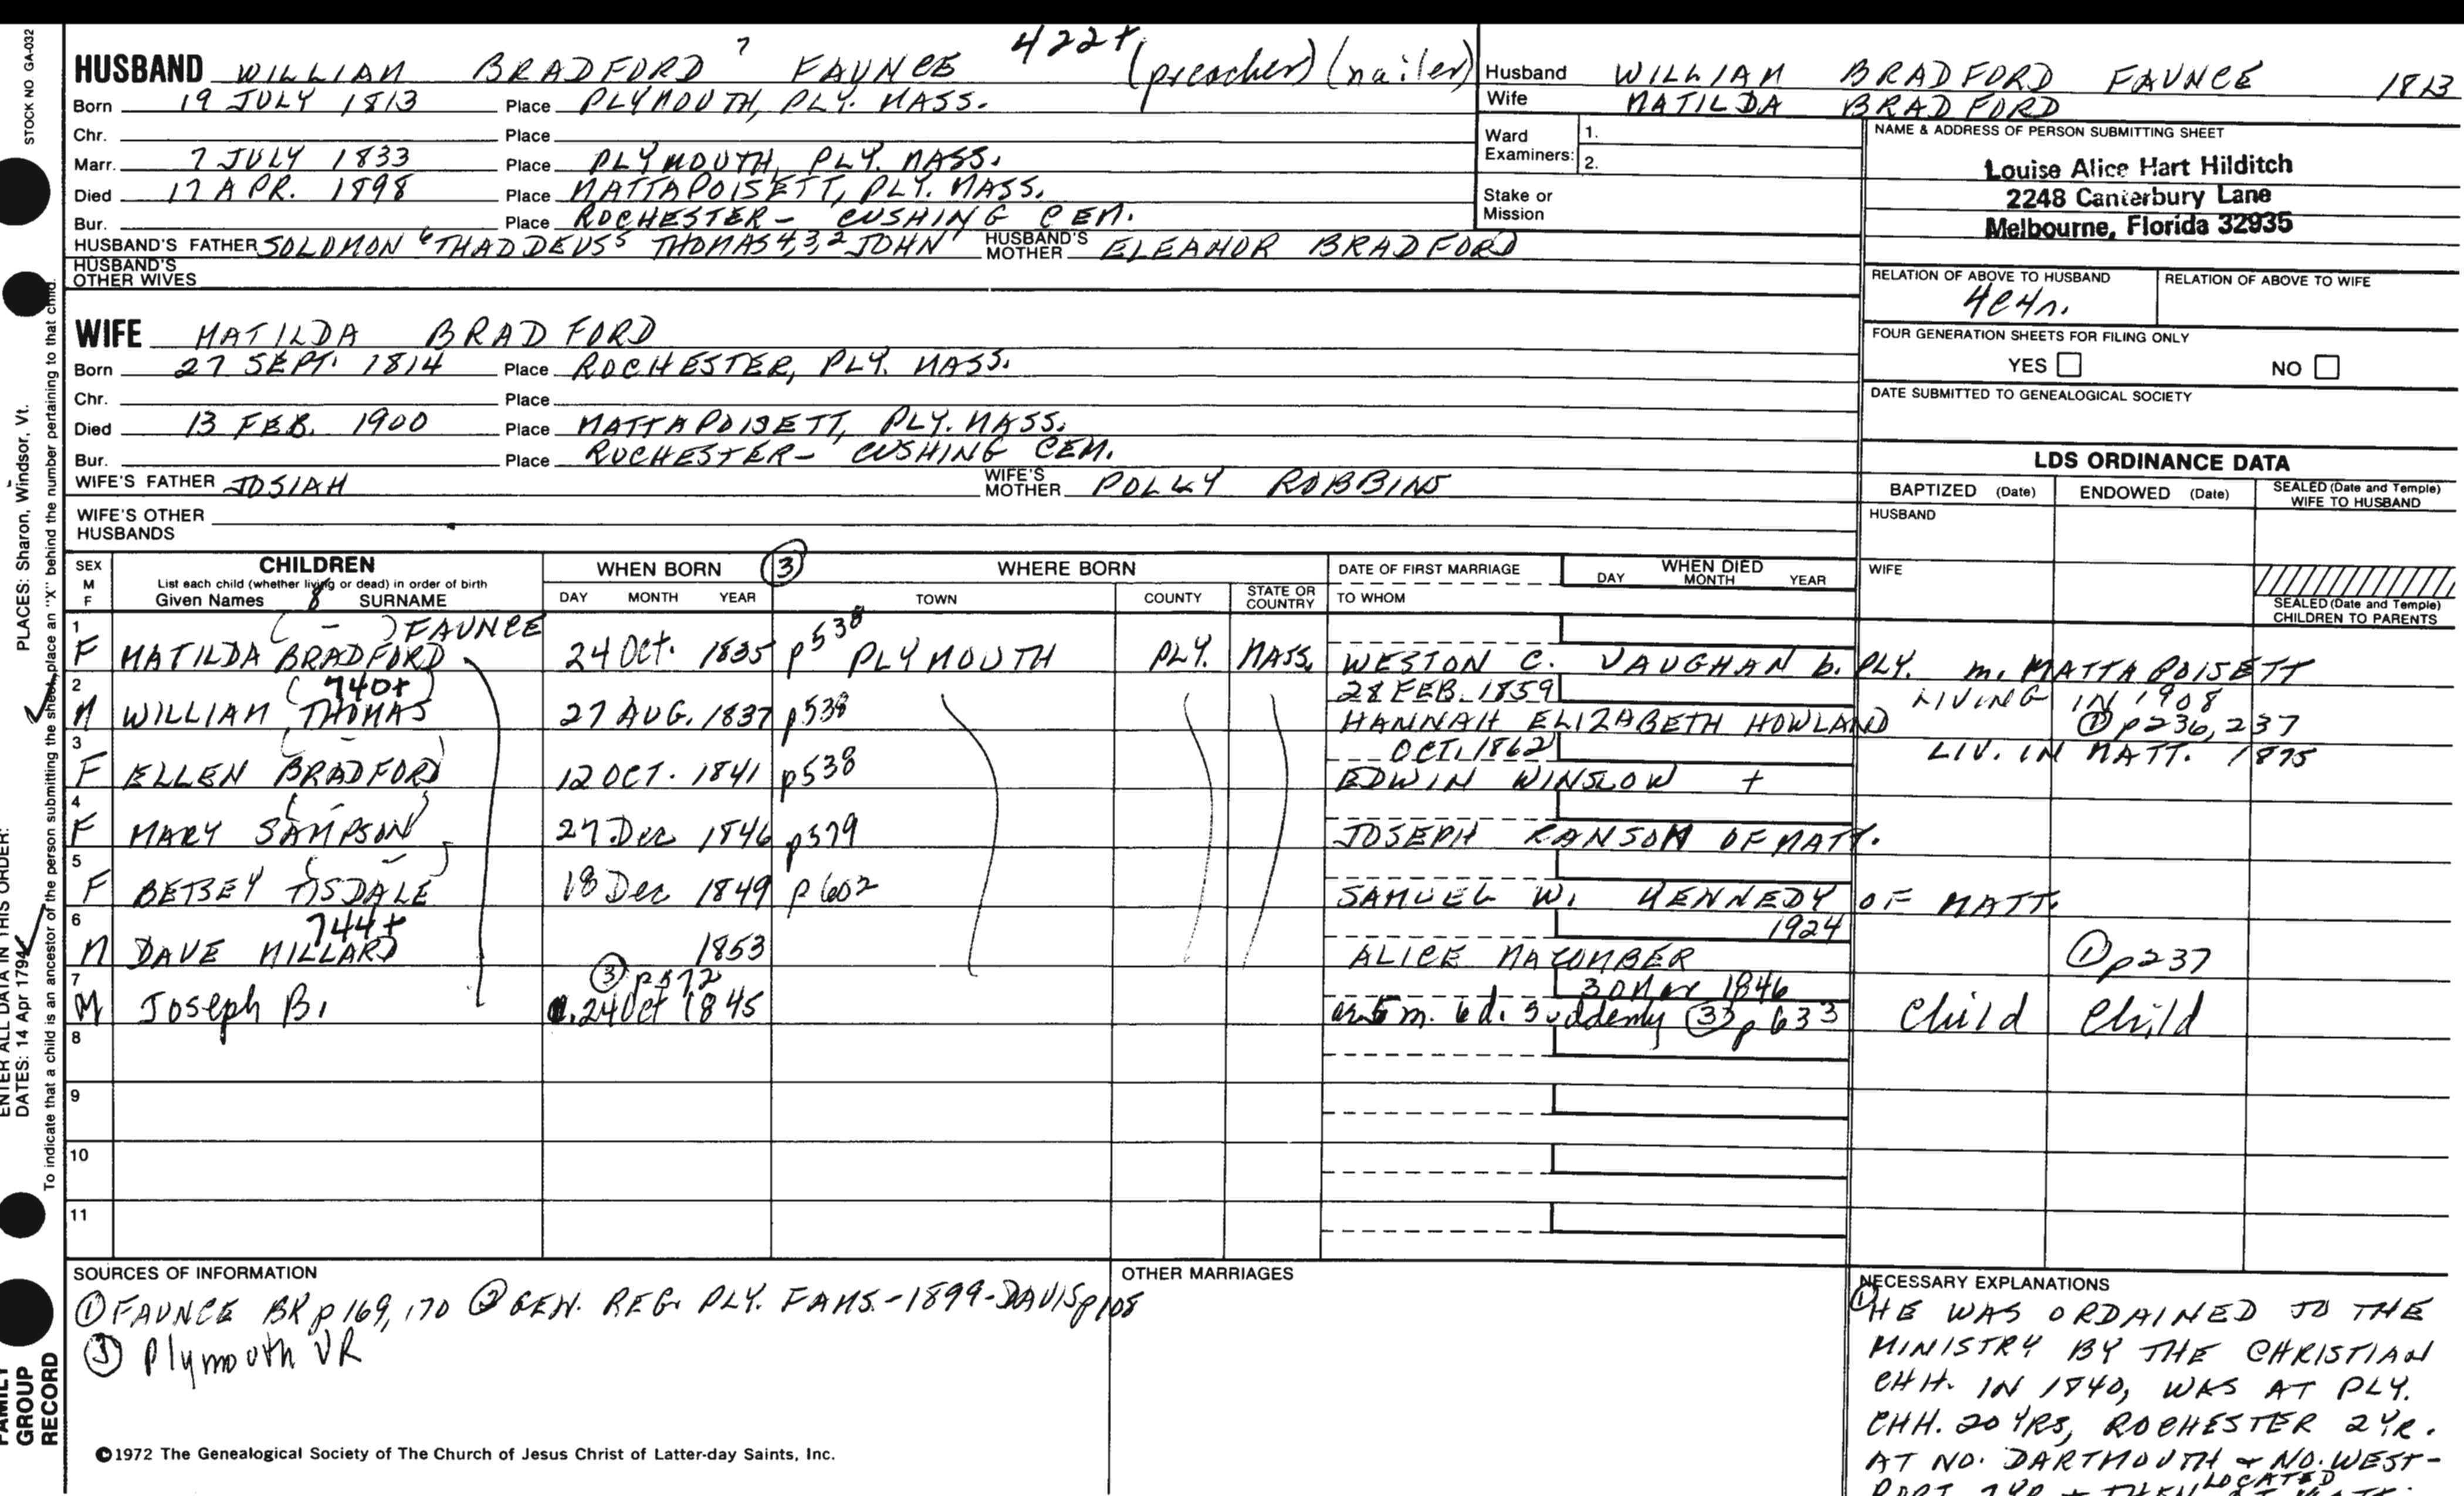 STOCK NO GA-032
PLACES: Sharon, Windsor, Vt.
ENTER ALL DATA IN THIS ORDER:
DATES: 14 Apr 1794
To indicate that a child is an ancestor of the person submitting the sheet, place an "X" behind the number pertaining to that child.
FAMILY GROUP RECORD
HUSBAND WILLIAM BRADFORD 7 FAUNCE 422+ (preacher) (nailer)
Born 19 JULY 1813 Place PLYMOUTH, PLY. MASS.
Chr. Place
Marr. 7 JULY 1833 Place PLYMOUTH, PLY. MASS.
Died 17 APR. 1898 Place MATTAPOISETT, PLY. MASS.
Bur. Place ROCHESTER - CUSHING CEM.
HUSBAND'S FATHER SOLOMON 6 THADDEUS 5 THOMAS 4,3,2 JOHN 1 HUSBAND'S MOTHER ELEANOR BRADFORD
HUSBAND'S OTHER WIVES
WIFE MATILDA BRADFORD
Born 27 SEPT. 1814 Place ROCHESTER, PLY. MASS.
Chr. Place
Died 13 FEB. 1900 Place MATTAPOISETT, PLY. MASS.
Bur. Place ROCHESTER - CUSHING CEM.
WIFE'S FATHER JOSIAH WIFE'S MOTHER POLLY ROBBINS
WIFE'S OTHER HUSBANDS
Husband WILLIAM BRADFORD FAUNCE 1813
Wife MATILDA BRADFORD
Ward Examiners: 1.
2.
Stake or Mission
NAME & ADDRESS OF PERSON SUBMITTING SHEET
Louise Alice Hart Hilditch
2248 Canterbury Lane
Melbourne, Florida 32935
RELATION OF ABOVE TO HUSBAND RELATION OF ABOVE TO WIFE
4C4r.
FOUR GENERATION SHEETS FOR FILING ONLY
YES NO
DATE SUBMITTED TO GENEALOGICAL SOCIETY
LDS ORDINANCE DATA
BAPTIZED (Date) ENDOWED (Date) SEALED (Date and Temple) WIFE TO HUSBAND
HUSBAND
WIFE
SEALED (Date and Temple) CHILDREN TO PARENTS
SEX M F CHILDREN WHEN BORN (3) WHERE BORN DATE OF FIRST MARRIAGE WHEN DIED
List each child (whether living or dead) in order of birth
Given Names 8 SURNAME DAY MONTH YEAR TOWN COUNTY STATE OR COUNTRY TO WHOM DAY MONTH YEAR
1 ( - ) FAUNCE
F MATILDA BRADFORD 24 OCT. 1835 p538 PLYMOUTH PLY. MASS. WESTON C. VAUGHAN b. PLY. m. MATTAPOISETT
2 (740+) 28 FEB. 1859 LIVING IN 1908
M WILLIAM THOMAS 27 AUG. 1837 p538 HANNAH ELIZABETH HOWLAND (1) p236, 237
3 ( - ) OCT. 1862 LIV. IN MATT. 1875
F ELLEN BRADFORD 12 OCT. 1841 p538 EDWIN WINSLOW +
4 ( - )
F MARY SAMPSON 27 Dec 1846 p579 JOSEPH RANSOM OF MATT.
5 ( - )
F BETSEY TISDALE 18 Dec 1849 p602 SAMUEL W. KENNEDY OF MATT.
6 744+ 1924
M DAVE MILLARD 1853 ALICE MACOMBER (1) p237
7 (3) p572 30 Mar 1846
M Joseph B. 24 Oct 1845 5 m. 6 d. suddenly (3) p633 Child Child
8
9
10
11
SOURCES OF INFORMATION
(1) FAUNCE BK p169, 170 (2) GEN. REG. PLY. FAMS. - 1899 - DAVIS p108
(3) Plymouth VR
OTHER MARRIAGES
NECESSARY EXPLANATIONS
(1) HE WAS ORDAINED TO THE
MINISTRY BY THE CHRISTIAN
CHH. IN 1840, WAS AT PLY.
CHH. 20 YRS, ROCHESTER 2 YR.
AT NO. DARTMOUTH + NO. WEST-
PORT + THEN LOCATED AT MATT.
©1972 The Genealogical Society of The Church of Jesus Christ of Latter-day Saints, Inc.